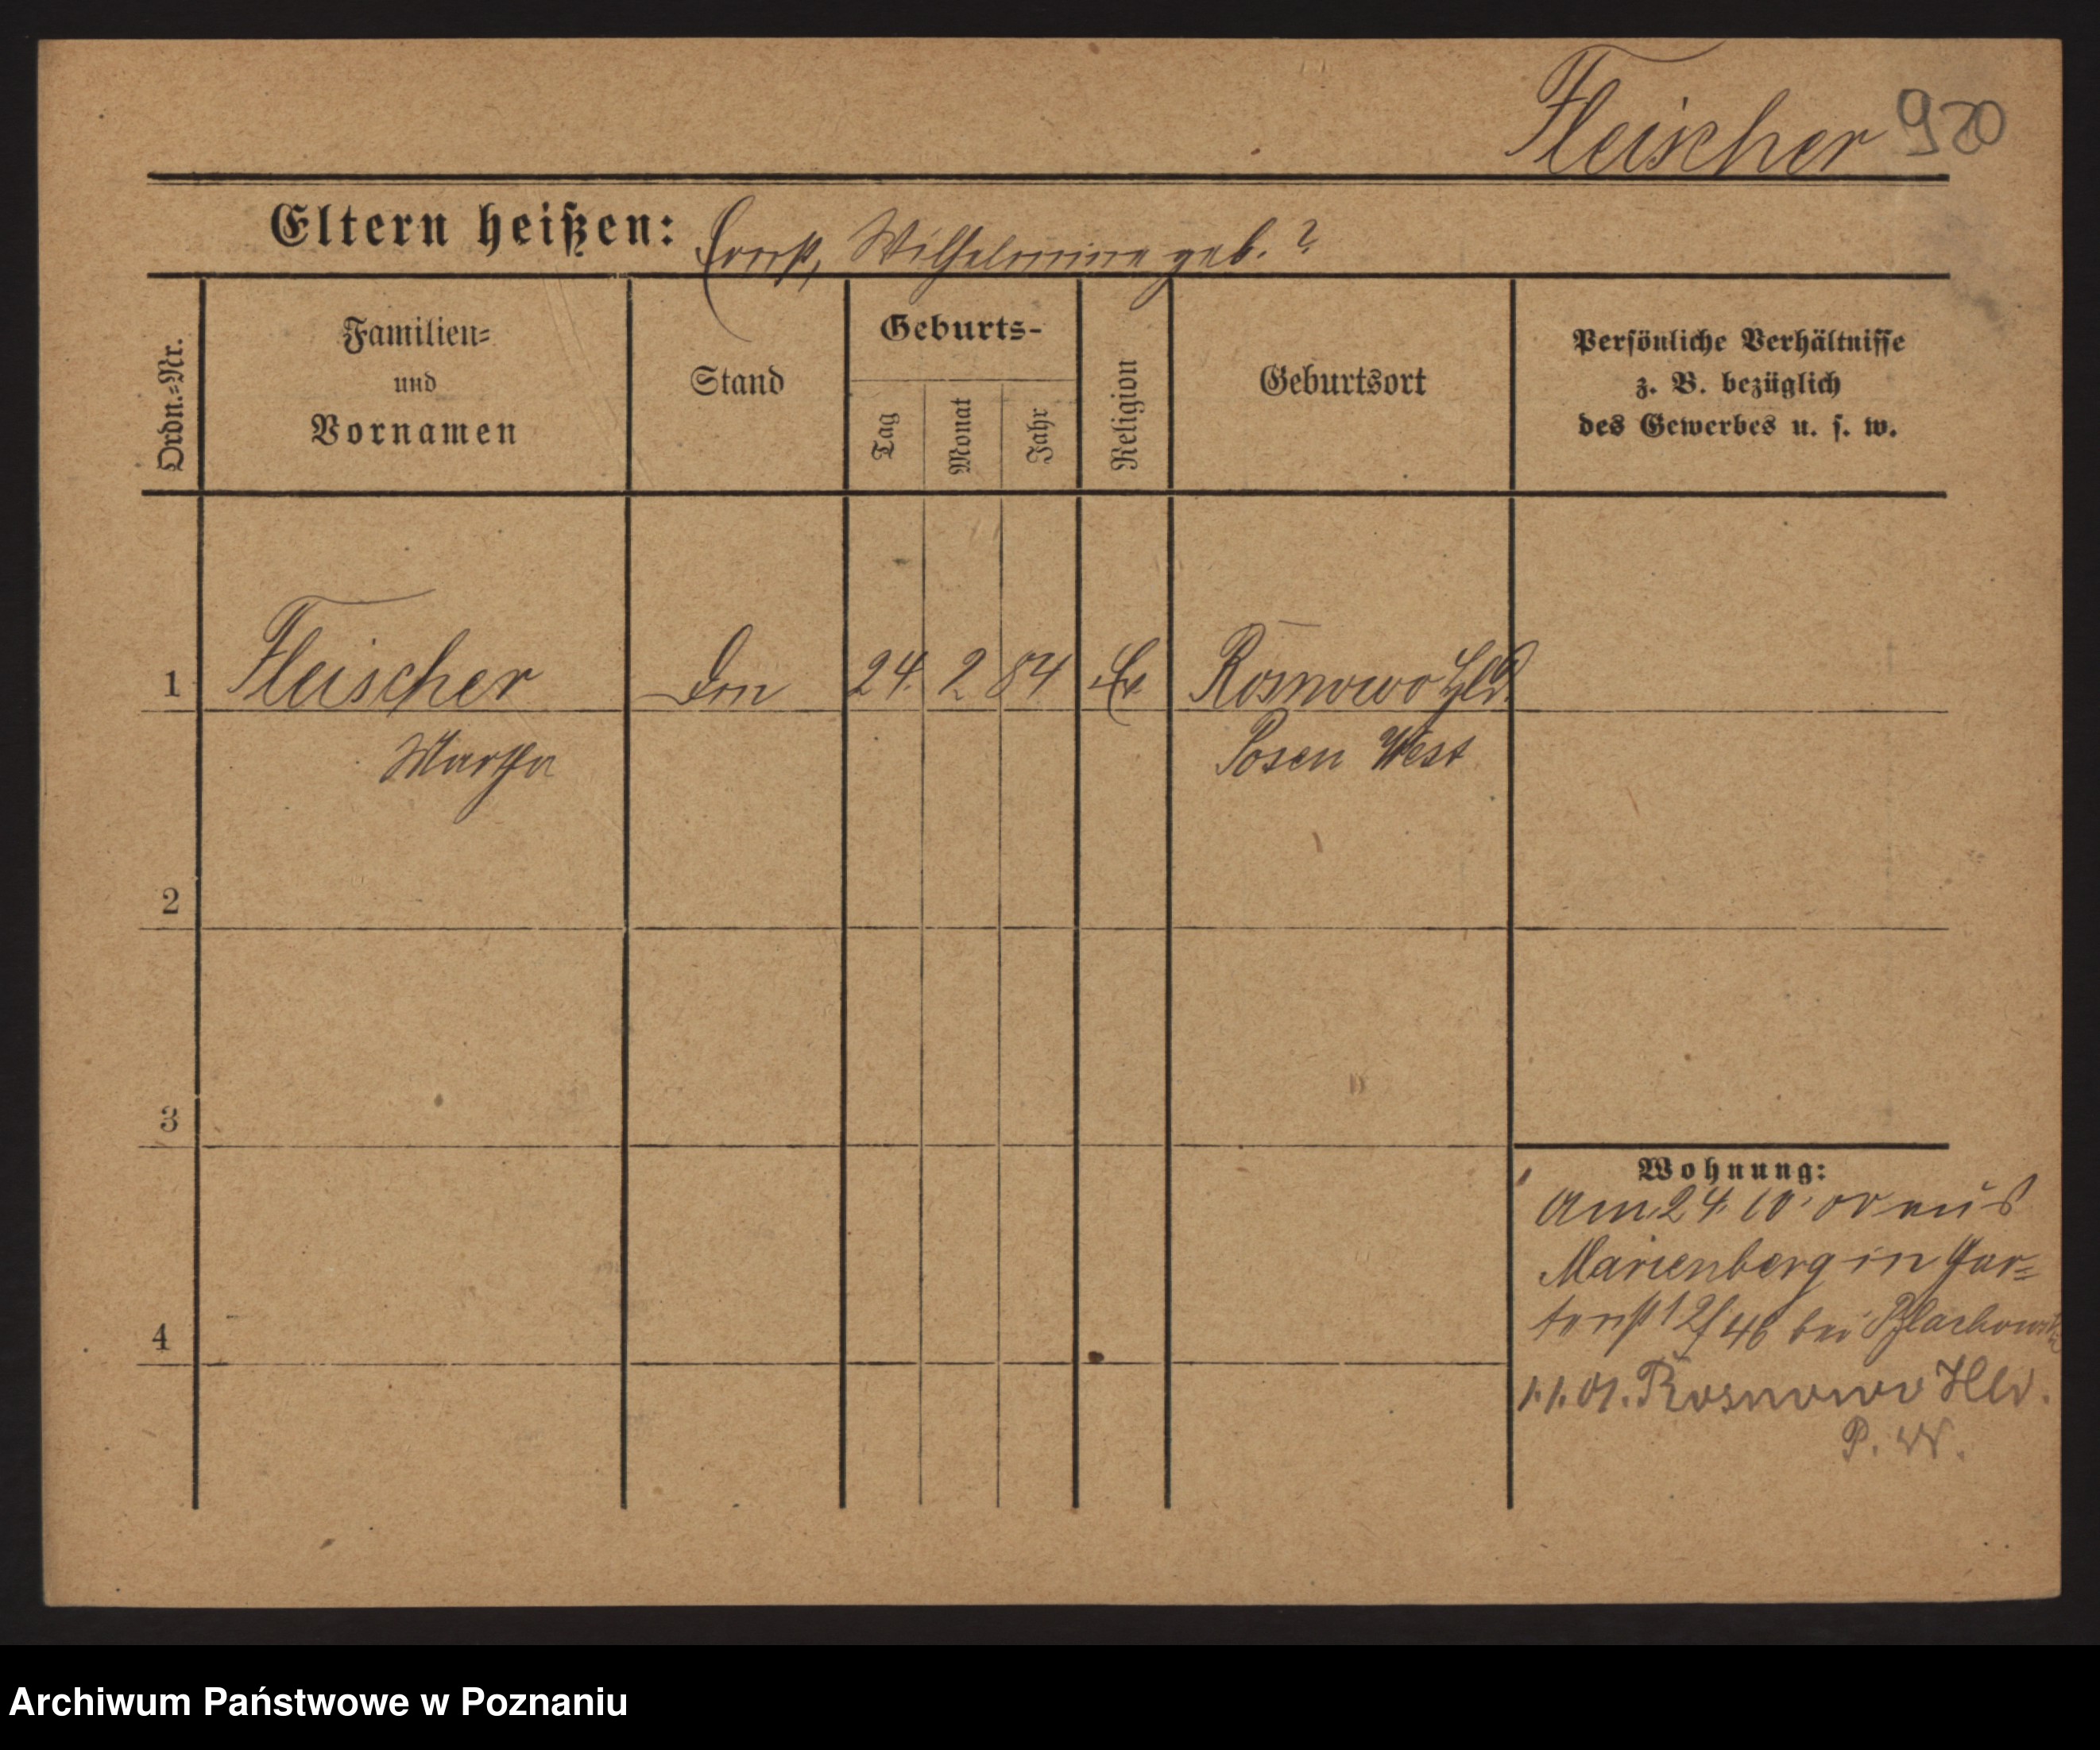 Fleischer 920
Eltern heißen: Ernst, Wilhelmine geb. ?
Ordn.=Nr.
Familien=
und
Vornamen
Stand
Geburts-
Tag
Monat
Jahr
Religion
Geburtsort
Persönliche Verhältnisse
z. B. bezüglich
des Gewerbes u. s. w.
1 Fleischer 24. 2 84 Ev. Rosnowo Hld.
Martha Posen West
2
3
4
Wohnung:
Am 24. 10. 00 aus
Marienberg in Gar=
tenst 12/46 bei
1.1.01. Rosnowo Hld.
P. W.
Archiwum Państwowe w Poznaniu